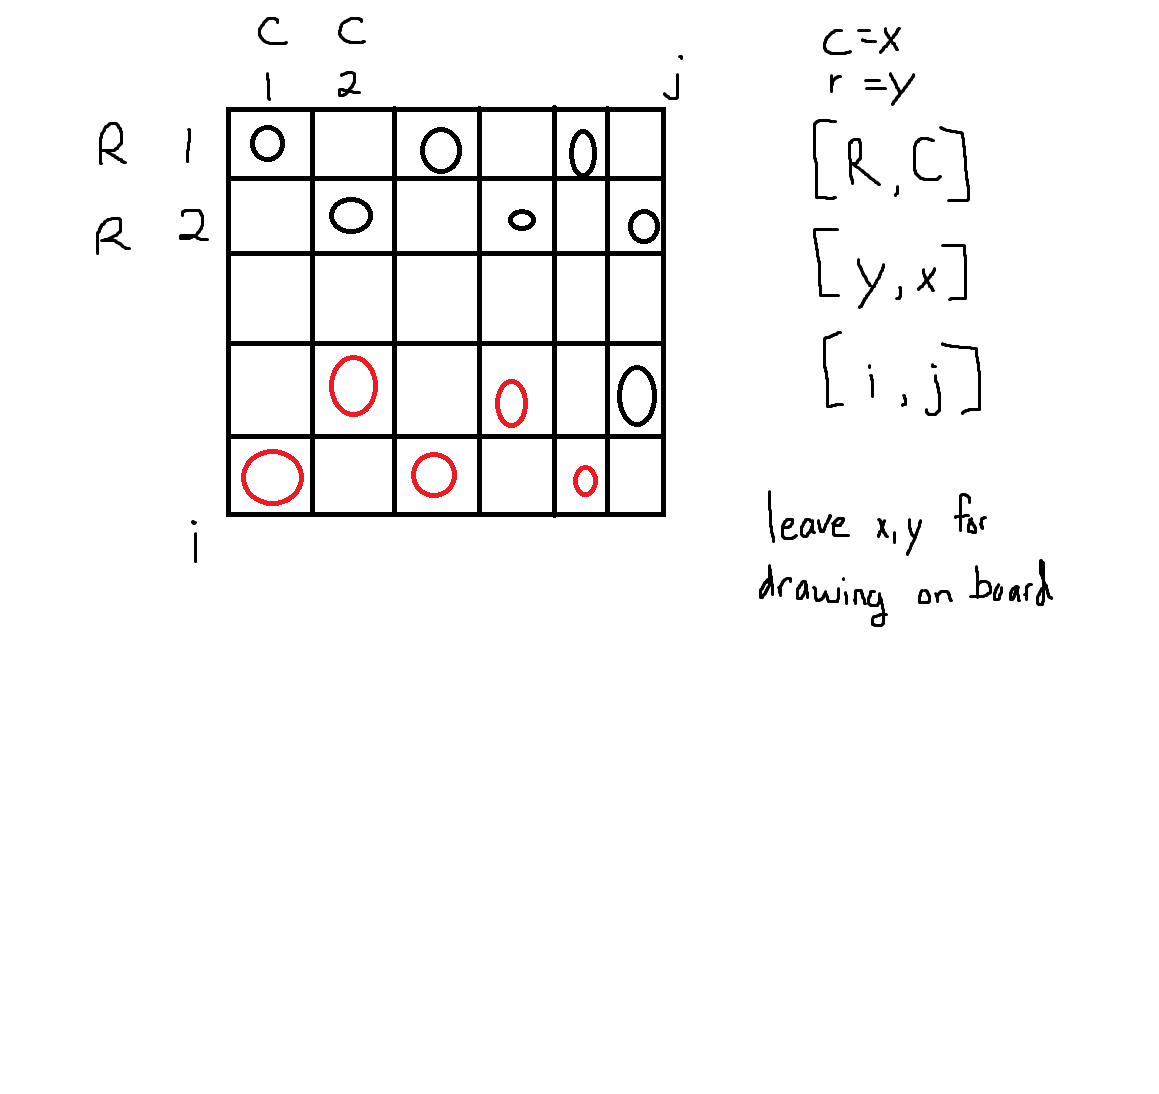 C C
1 2 j
R 1
R 2
i
C=x
r =y
[R,C]
[y,x]
[i,j]
leave x,y for
drawing on board